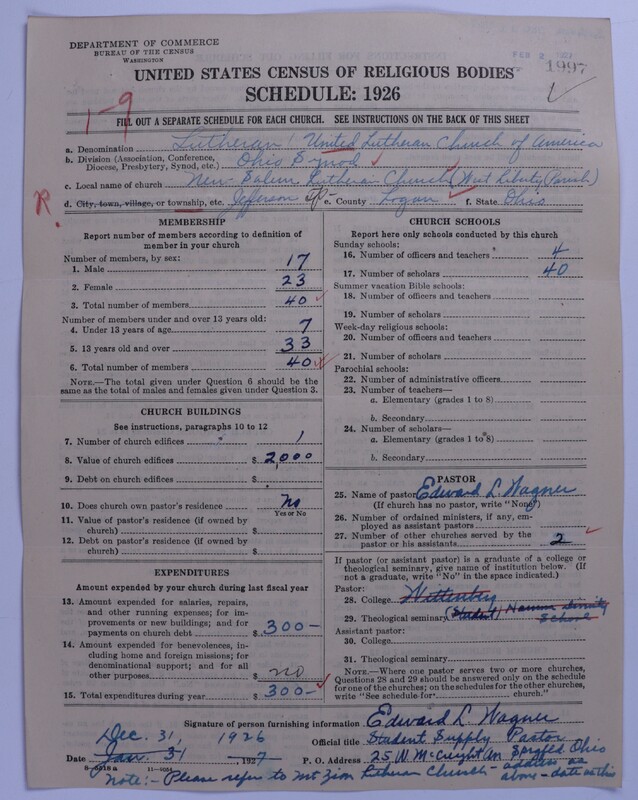 DEPARTMENT OF COMMERCE
BUREAU OF THE CENSUS
WASHINGTON
FEB 2 1927
1997
UNITED STATES CENSUS OF RELIGIOUS BODIES
SCHEDULE: 1926
1-9
FILL OUT A SEPARATE SCHEDULE FOR EACH CHURCH. SEE INSTRUCTIONS ON THE BACK OF THIS SHEET
a. Denomination Lutheran / United Lutheran Church of America
b. Division (Association, Conference, Diocese, Presbytery, Synod, etc.) Ohio Synod
c. Local name of church New Salem Lutheran Church (West Liberty Parish)
R.
d. City, town, village, or township, etc. Jefferson e. County Logan f. State Ohio
MEMBERSHIP
Report number of members according to definition of
member in your church
Number of members, by sex:
1. Male 17
2. Female 23
3. Total number of members 40
Number of members under and over 13 years old:
4. Under 13 years of age 7
5. 13 years old and over 33
6. Total number of members 40
NOTE.—The total given under Question 6 should be
same as the total of males and females given under Question 3.
CHURCH BUILDINGS
See instructions, paragraphs 10 to 12
7. Number of church edifices 1
8. Value of church edifices $ 2,000
9. Debt on church edifices $
10. Does church own pastor's residence? No
Yes or No
11. Value of pastor's residence (if owned by
church) $
12. Debt on pastor's residence (if owned by
church) $
EXPENDITURES
Amount expended by your church during last fiscal year
13. Amount expended for salaries, repairs,
and other running expenses; for im-
provements or new buildings; and for
payments on church debt $ 300-
14. Amount expended for benevolences,
including home and foreign missions; for
denominational support; and for all
other purposes $ no
15. Total expenditures during year $ 300-
CHURCH SCHOOLS
Report here only schools conducted by this church
Sunday schools:
16. Number of officers and teachers 4
17. Number of scholars 40
Summer vacation Bible schools:
18. Number of officers and teachers
19. Number of scholars
Week-day religious schools:
20. Number of officers and teachers
21. Number of scholars
Parochial schools:
22. Number of administrative officers
23. Number of teachers—
a. Elementary (grades 1 to 8)
b. Secondary
24. Number of scholars—
a. Elementary (grades 1 to 8)
b. Secondary
PASTOR
25. Name of pastor Edward L. Wagner
(If church has no pastor, write "None")
26. Number of ordained ministers, if any, em-
ployed as assistant pastors
27. Number of other churches served by the
pastor or his assistants 2
If pastor (or assistant pastor) is a graduate of a college or
theological seminary, give name of institution below. (If
not a graduate, write "No" in the space indicated.)
Pastor:
28. College Wittenberg
29. Theological seminary (Student) Hamma Divinity School
Assistant pastor:
30. College
31. Theological seminary
NOTE.—Where one pastor serves two or more churches,
Questions 28 and 29 should be answered only on the schedule
for one of the churches; on the schedules for the other churches,
write "See schedule for church."
Signature of person furnishing information Edward L. Wagner
Dec. 31, 1926
Official title Student Supply Pastor
Date Jan. 31, 1927 P. O. Address 25 W. McCreight Av Spngfld Ohio
8-5518a 11-9054
Note:- Please refer to Mt Zion Lutheran Church - address as
above - date on this